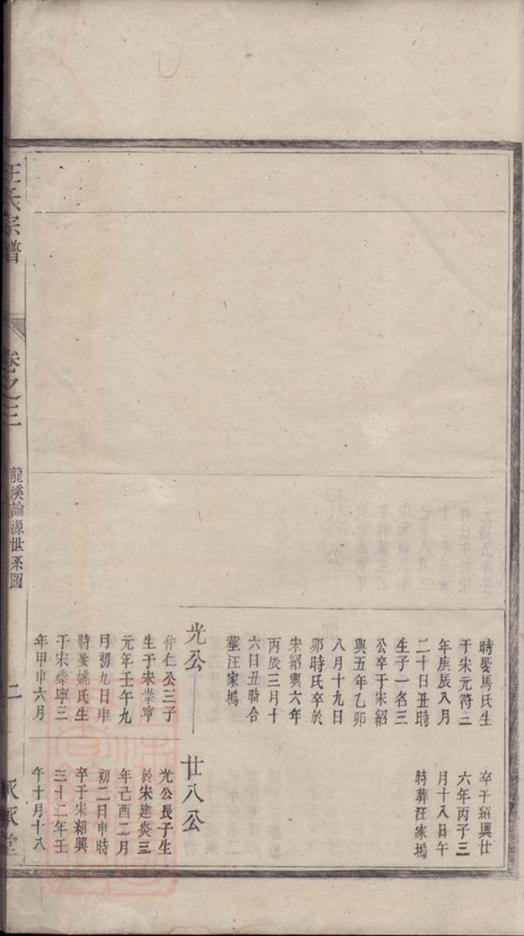 時娶馬氏生
于宋元符二
年庚辰八月
二十日丑時
生子一名三
公卒于宋紹
興五年乙卯
八月十九日
卯時氏卒於
宋紹興六年
丙辰三月十
六日丑時合
塟汪家塢
卒于紹興廿
六年丙子三
月十八日午
時葬汪家塢
光公
仲仁公三子
生于宋崇寧
元年壬午九
月初九日申
時娶姚氏生
于宋崇寧三
年甲申六月
廿八公
光公長子生
於宋建炎三
年己酉二月
初二日申時
卒于宋紹興
三十二年壬
午十月十八
汪氏宗譜
卷之三
龍溪 源世系圖
二